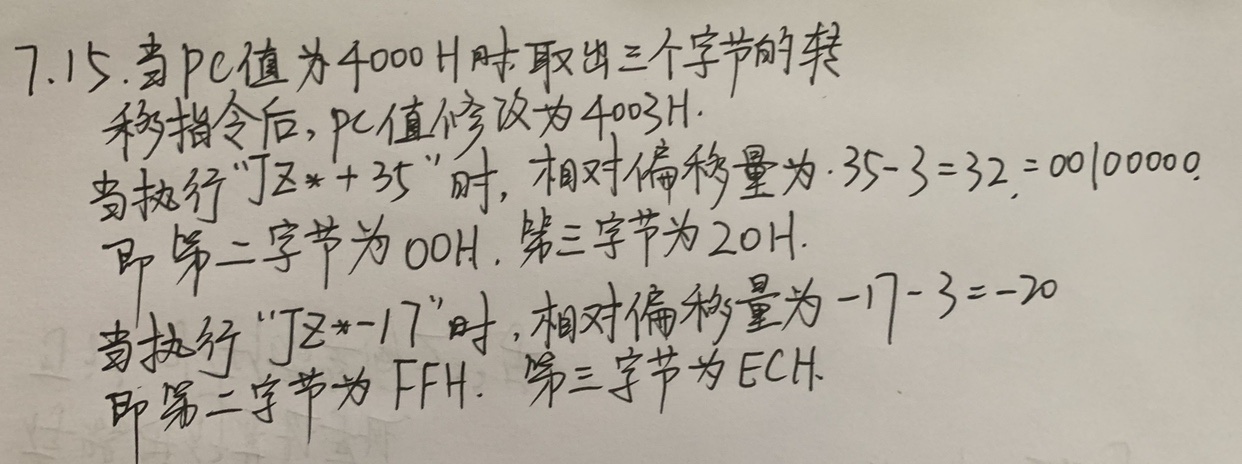 7.15.当PC值为4000H时取出三个字节的转
移指令后,PC值修改为4003H.
当执行“JZ*+35”时,相对偏移量为.35-3=32.=00100000.
即第二字节为00H.第三字节为20H.
当执行“JZ*-17”时,相对偏移量为-17-3=-20
即第二字节为FFH.第三字节为ECH.